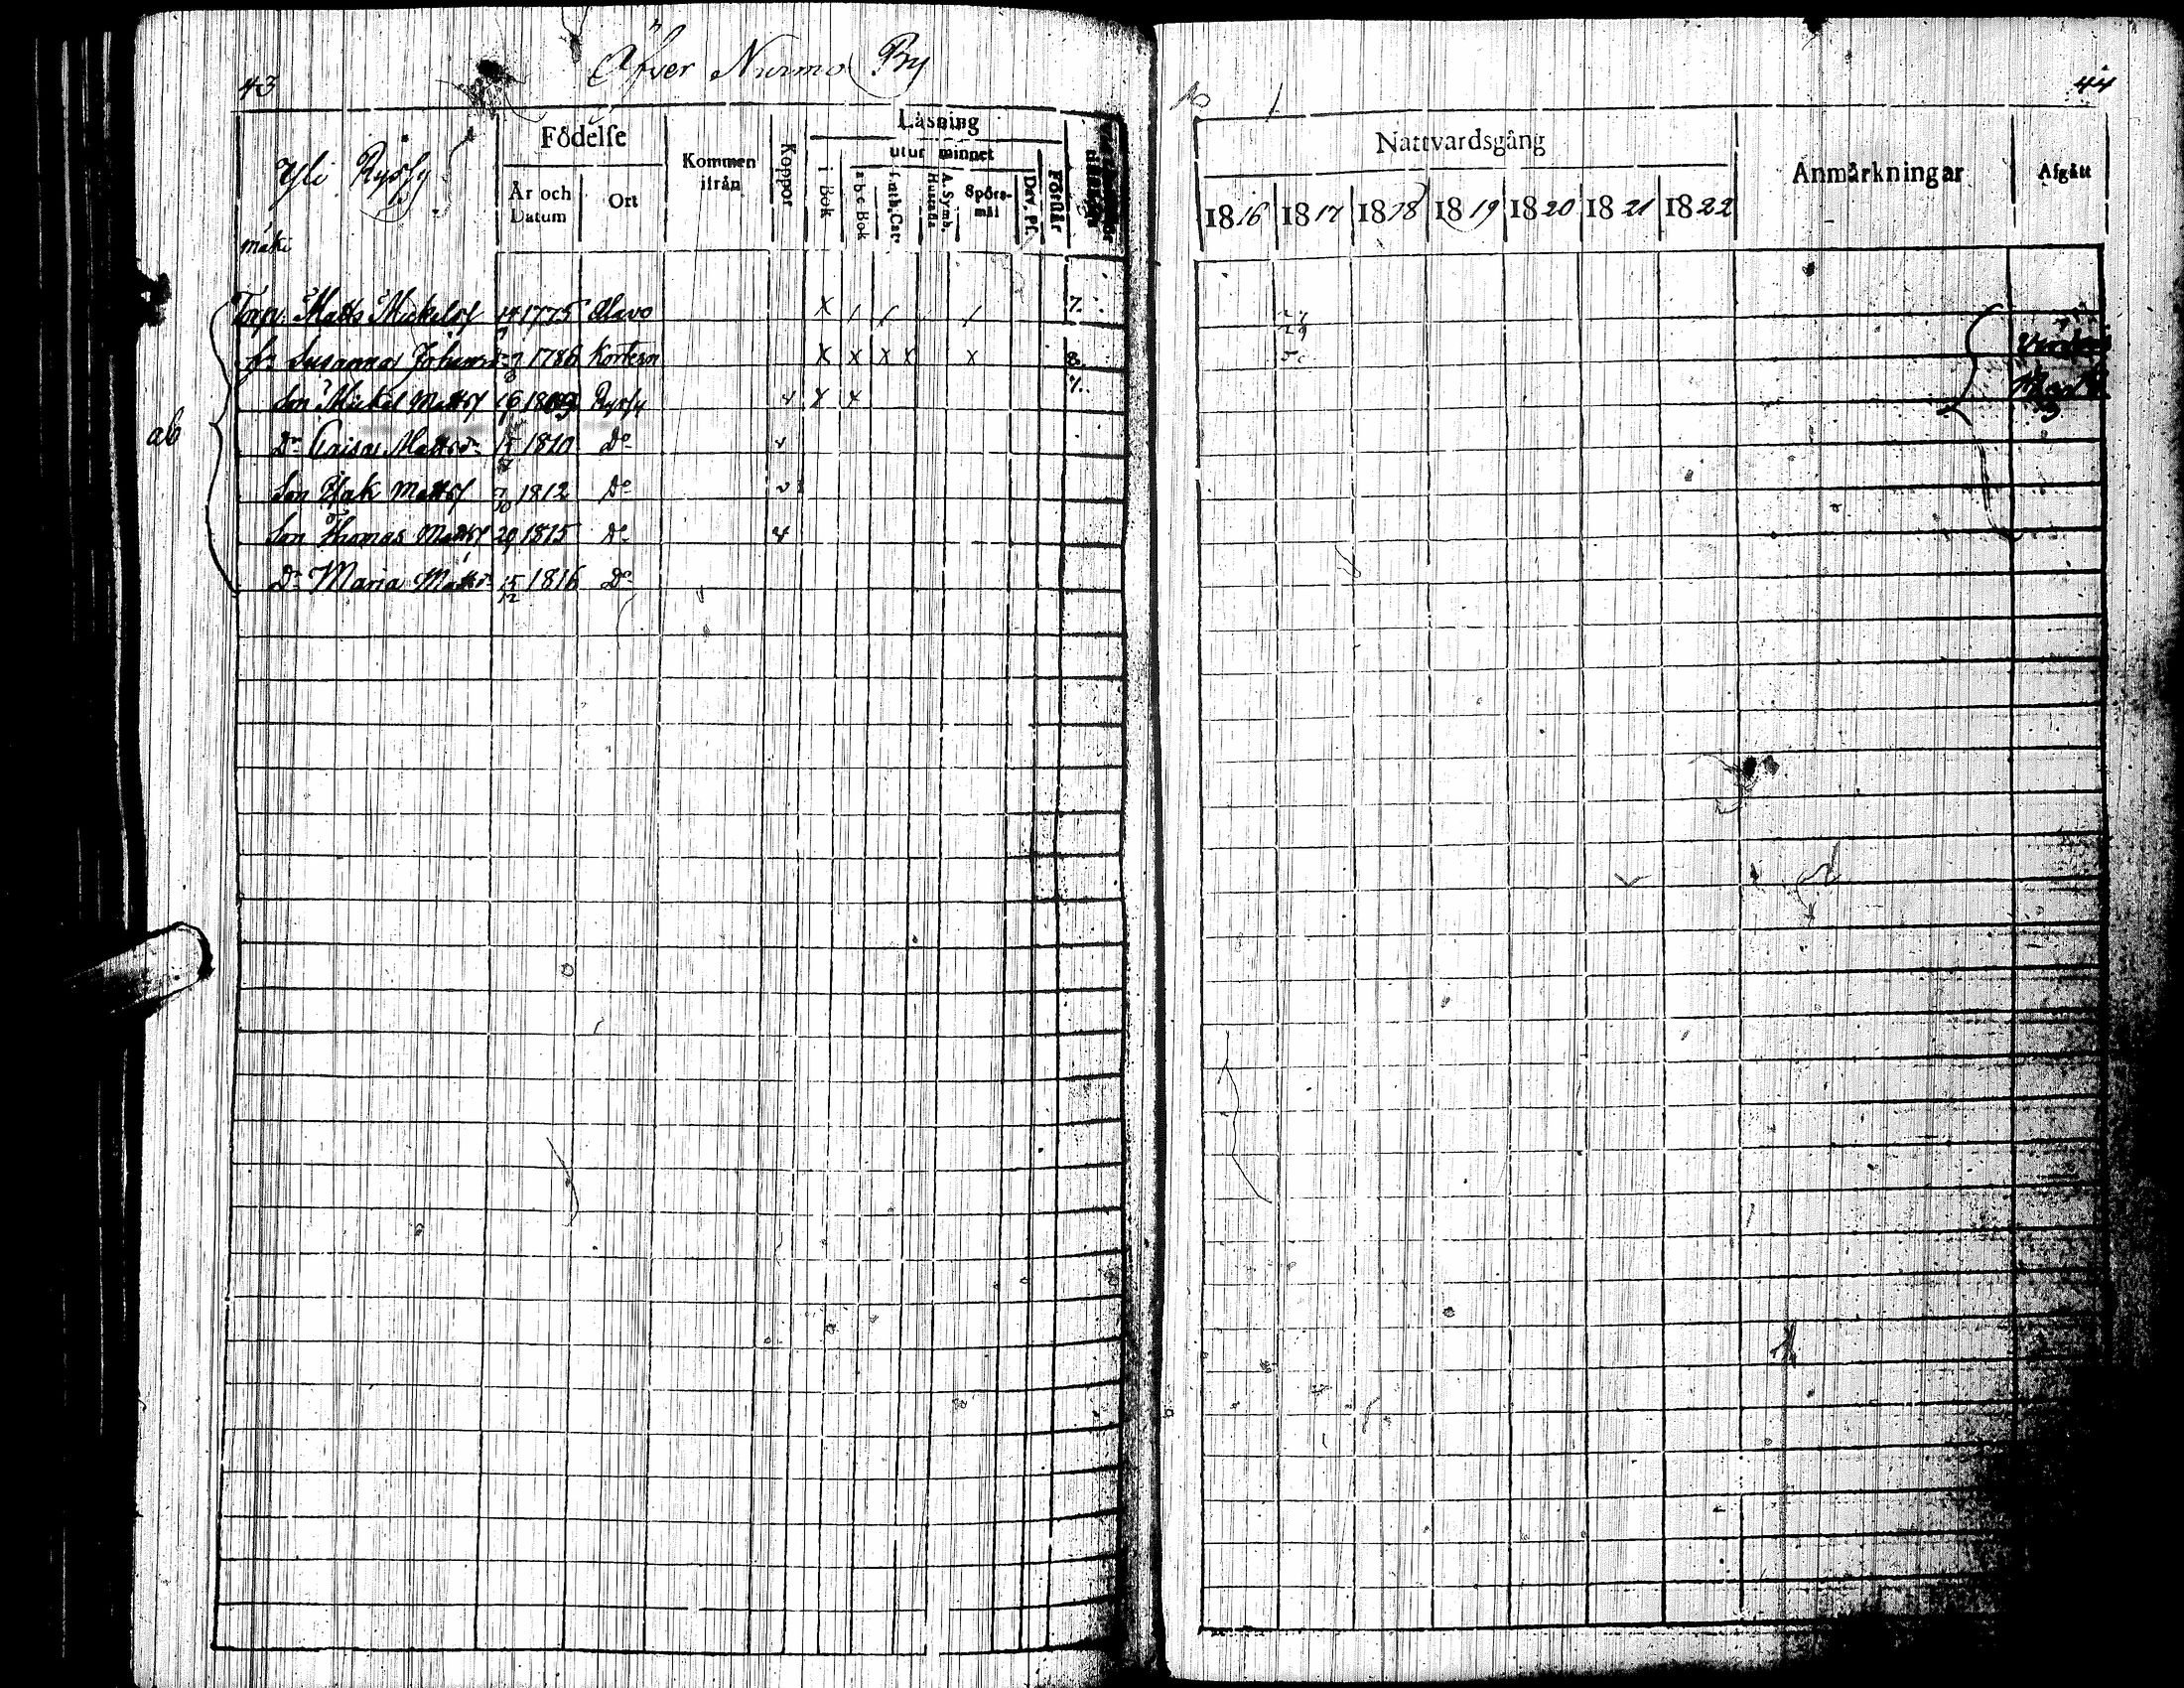 43
Öfver Nurmo By
Yli Ryssy
mäki
Födelse
År och Datum
Ort
Kommen ifrån
Koppor
Läsning
i Bok
utur minnet
a b c Bok
Luth. Cat.
A. Symb. Hustafla
Spörsmål
Dav. Ps.
Förstår
ab
Torp. Matts Mickelss 14 1775 Alavo X / / / 7.
hu Susanna Johansd 1786 Kortesn X X X X X 8.
Son Mickel Mattss 16 1809 Ryssy v X X 7.
Dr Caisa Mattsdr 15 1810 Do v
Son Isak Mattss 7/10 1812 Do v
Son Thomas Mattss 20 1815 Do v
Dr Maria Mattsdr 15/12 1816 Do
No 1
44
Nattvardsgång
1816 1817 1818 1819 1820 1821 1822
Anmärkningar
Afgått